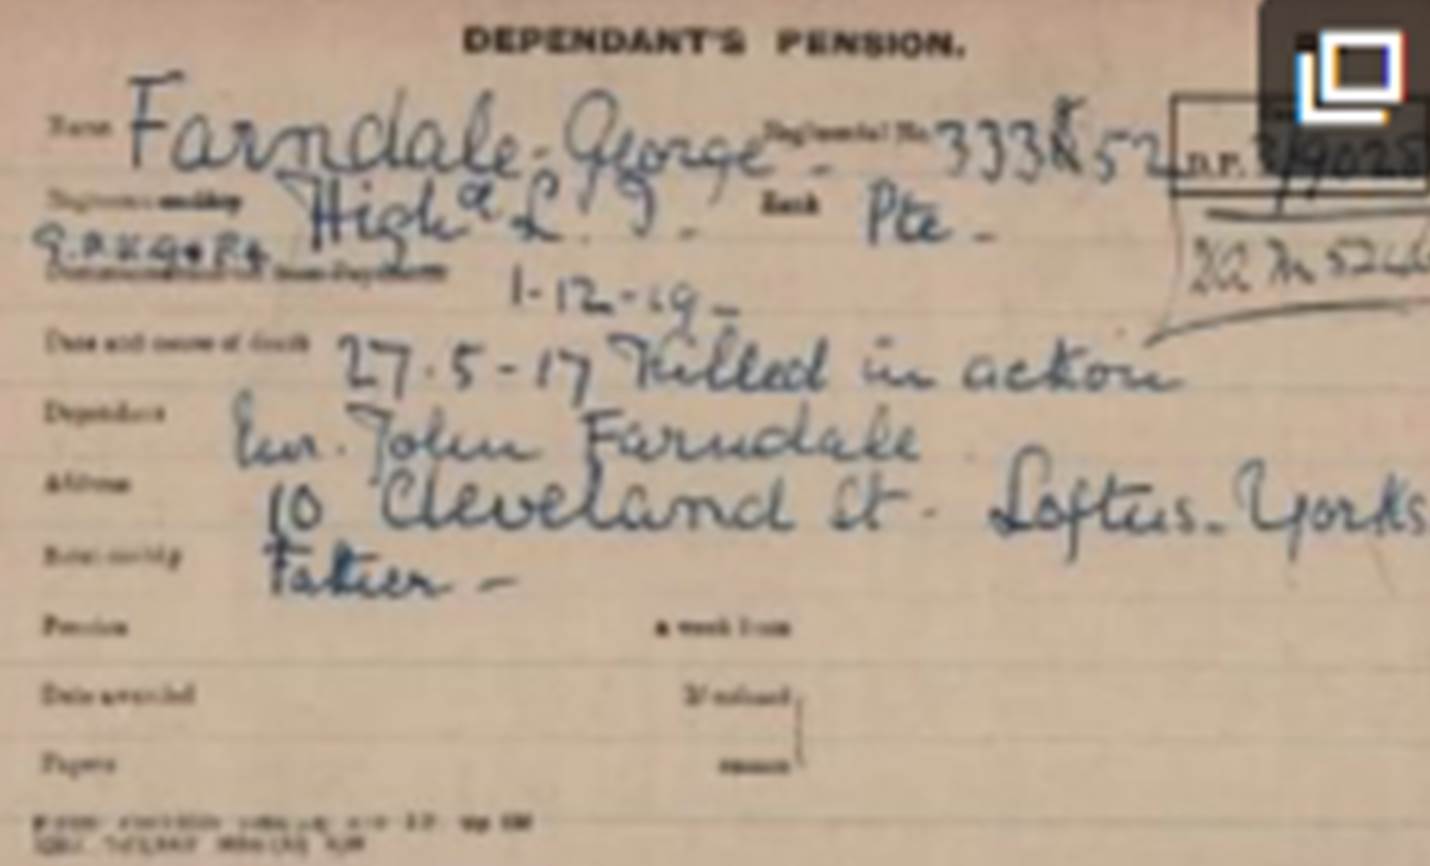 DEPENDANT'S PENSION.
Name Farndale - George - Regimental No. 52 D.P.
High L. I. - Rank Pte -
1-12-19 -
Date and cause of death 27-5-17 Killed in action
Dependant John Farndale
Address 10 Cleveland St. Loftus. Yorks
Relationship Father -
Pension a week from
Date awarded If refused
Papers reason